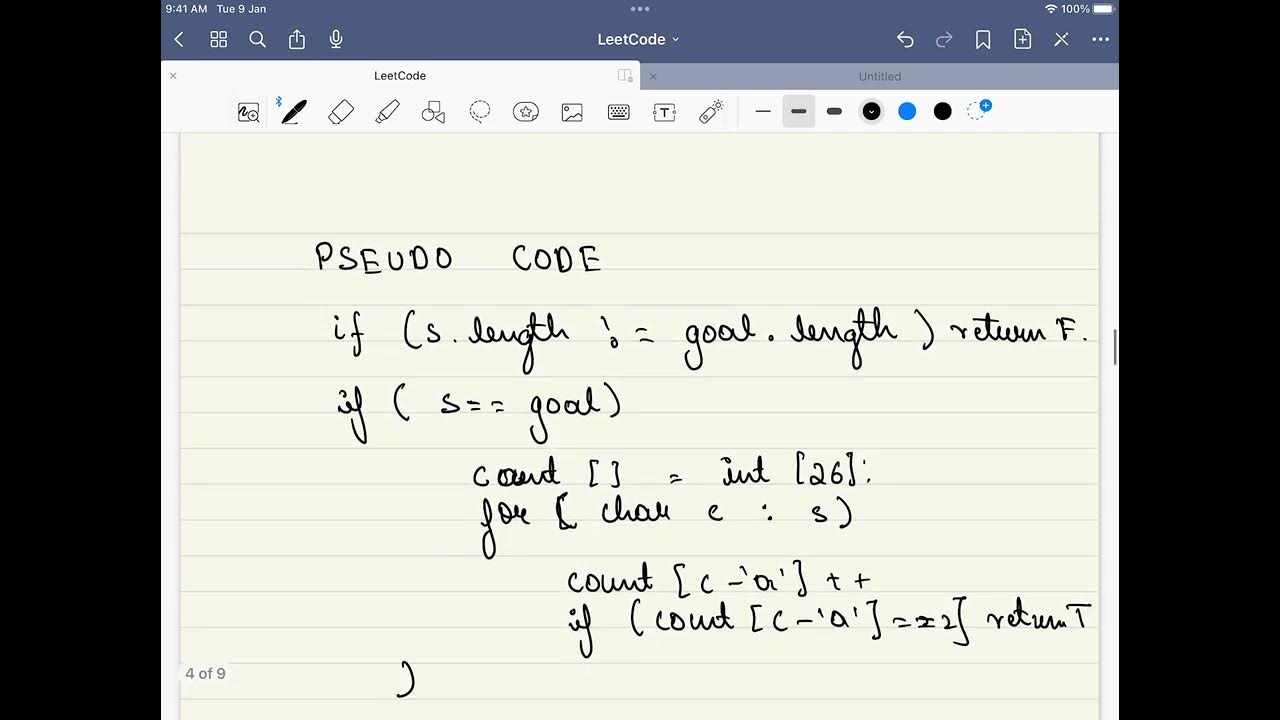 9:41 AM Tue 9 Jan
100%
LeetCode
LeetCode
Untitled
PSEUDO CODE
if (s.length != goal.length) return F.
if ( s== goal)
count [] = int [26];
for ( char c : s)
count [c-'a'] ++
if (count [c-'a'] ==2] return T
)
4 of 9